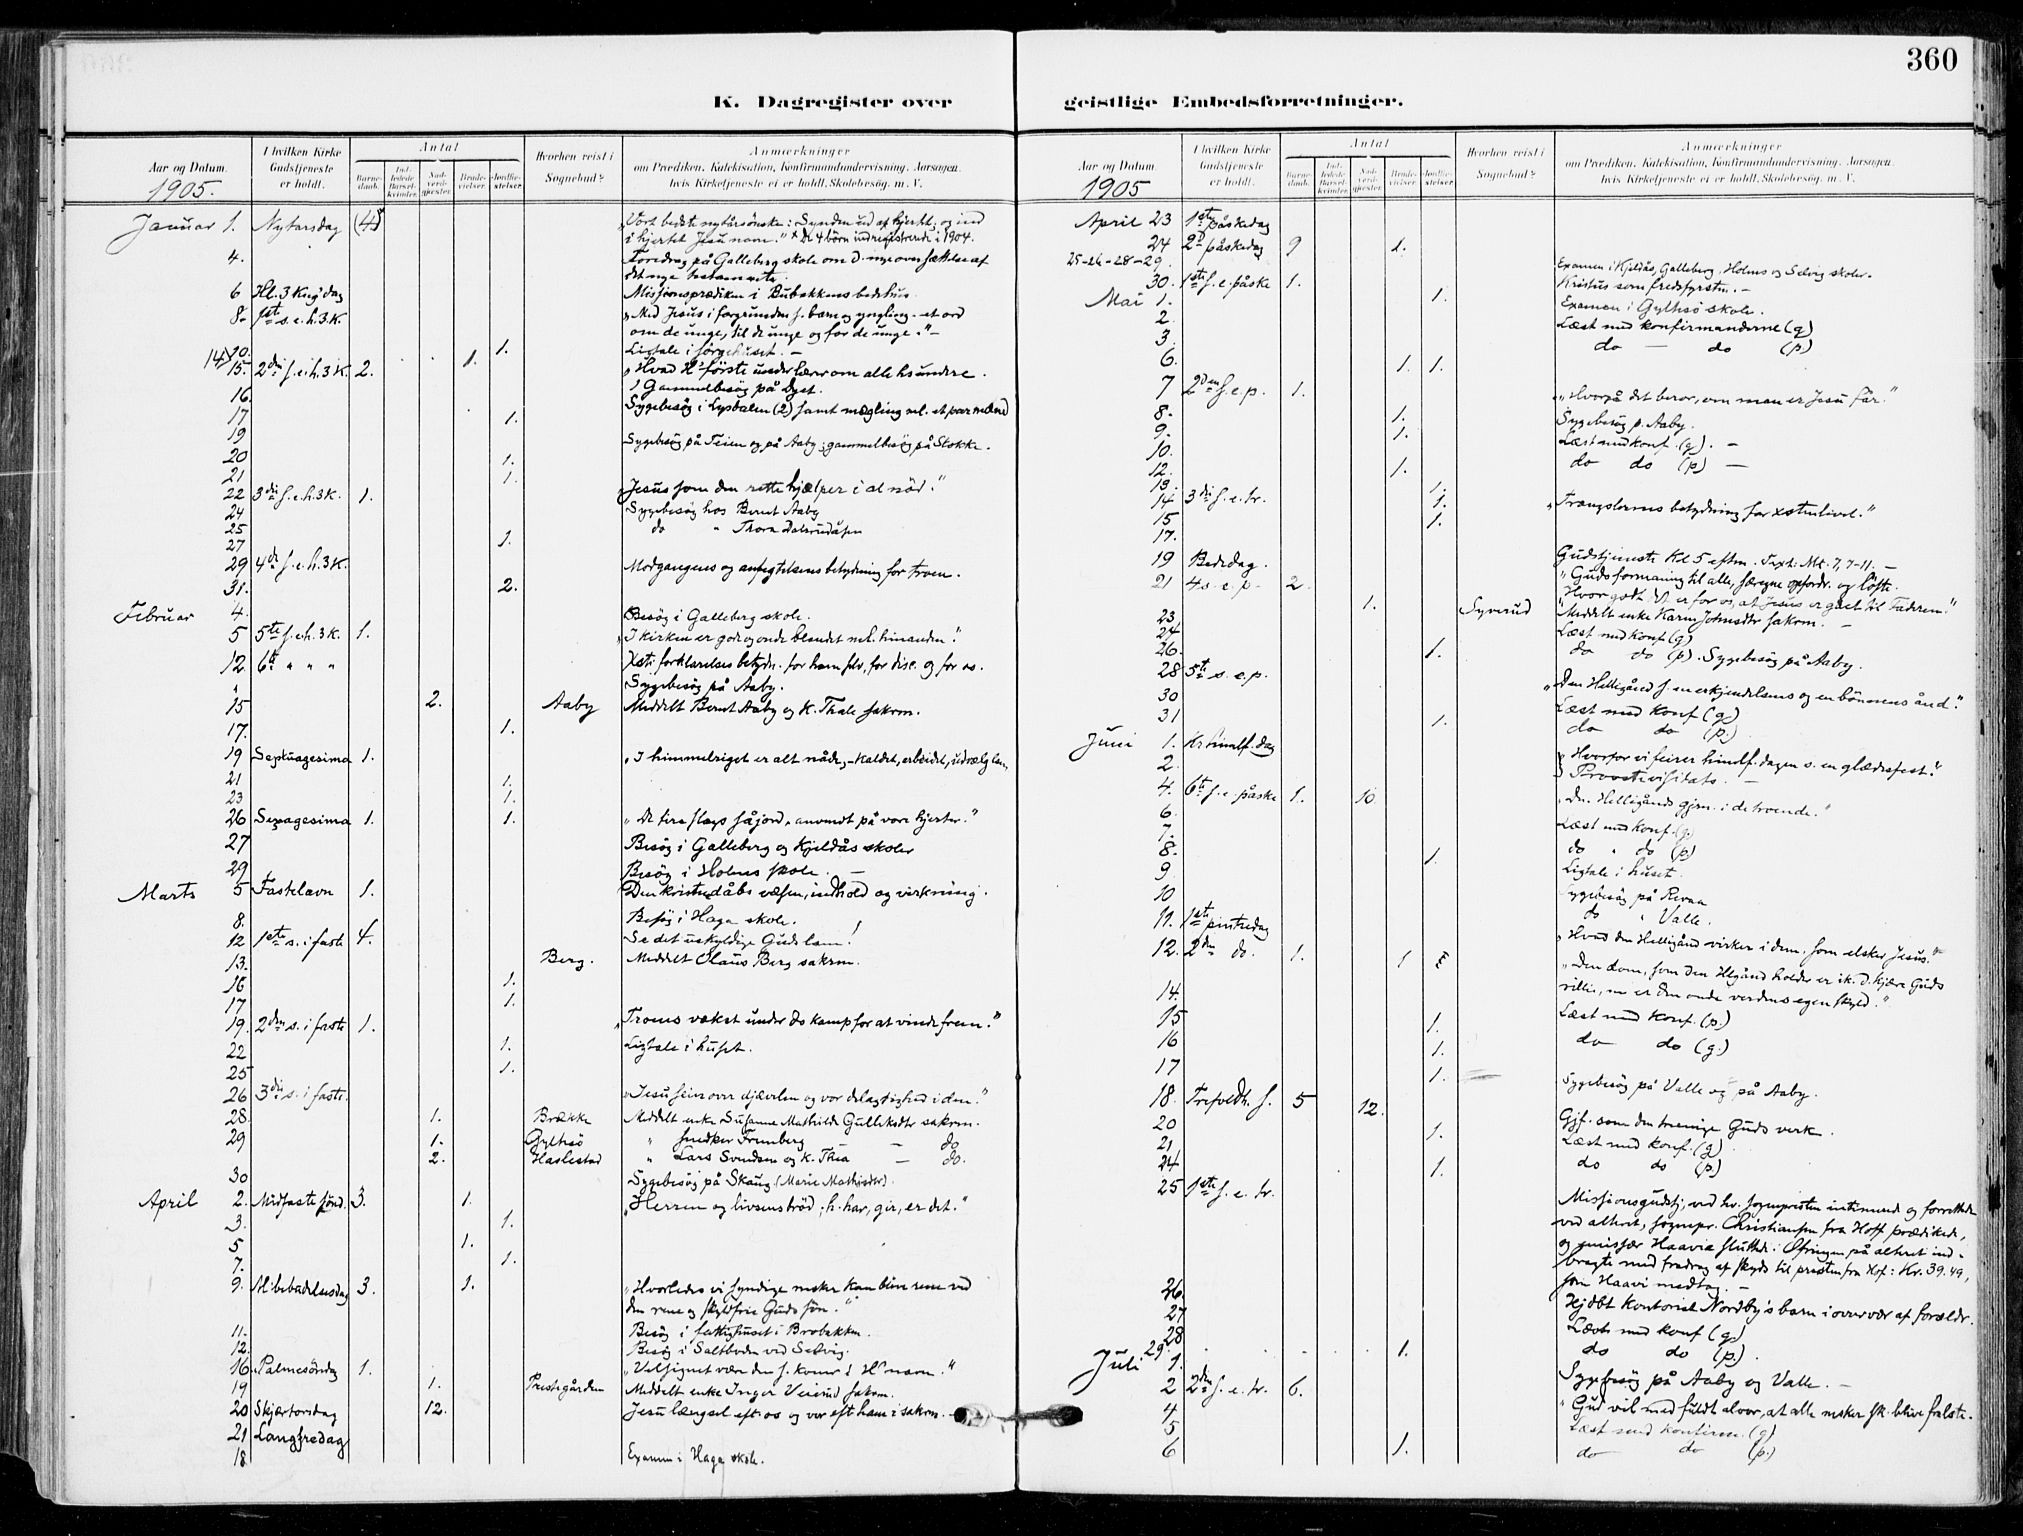 360
K. Dagregister over geistlige Embedsforretninger.
Aar og Datum. 1905.
I hvilken Kirke Gudstjeneste er holdt.
Antal
Barne-daab.
Ind-ledede Barsel-kvinder.
Nad-verd-gjester.
Brude-vielser.
Jordfæ-stelser.
Hvorhen reist i Sognebud?
Anmærkninger
om Prædiken, Katekisation, Konfirmandundervisning, Aarsagen, hvis Kirketjeneste ei er holdt, Skolebesøg, m. V.
Januar 1. Nytarsdag (4) „Vort bedste nytårsönske: Synden ud af hjertet; og ind
i hjertet Jesu navn." * De 4 börn indregistrerede i 1904.
4. Foredrag på Galleberg skole om d. nye oversættelse af
det nye testamente.
6 Hl. 3 Kng' dag Missionsprædiken i Bubakkens bedehus.
8. 1ste s. e. h. 3 K. „Med Jesus i forgrunden f. barn og yngling - et ord
om de unge, til de unge og for de unge." -
10. 1. Ligtale i sørgehuset. -
14) 15. 2den s. e. h. 3 K. 2. 1. „Hvad H' förste under lærer om alle hs undere.
16. 1 Gammelbesög på Dyst.
17 1. Sygebesög i Lysdalen (2) samt mægling ml. et par mænd
19 Sygebesög på Teien og på Aaby; gammelbesög på Stokke.
20 1.
21 1.
22 3die s. e. h. 3 K. 1. „Jesus som den rette hjælper i al nöd."
24 Sygebesög hos Bernt Aaby
25 do " Thora Dalsrudåsen
27 1.
29 4de s. e. h. 3 K. Modgangens og anfegtelsens betydning for troen.
31. 2.
Februar 4. Besög i Galleberg skole.
5 5te s. e. h. 3 K. 1. „I kirken er gode og onde blandet ml. hinanden."
12. 6te " " " Xsti forklarelses betydn. for ham selv, for disc. og for os.
" Sygebesög på Aaby.
15 2. Aaby Meddelt Bernt Aaby og K. Thale sakrm.
17. 1.
19 Septuagesima 1. „I himmelriget er alt nåde, - kaldet, arbeidet, udvælgelsen.
21 1.
23 1.
26 Sexagesima 1. 1. „De fire slags såjord, anvendt på vore hjerter."
27 Besög i Galleberg og Kjeldås skoler
29 Besög i Holms skole. -
Marts 5 Fastelavn 1. Den kristne dåbs væsen, indhold og virkning.
8. Besög i Haga skole.
12 1ste s. i faste 4. Se det uskyldige Guds lam!
13. Berg. Meddelt Olaus Berg sakrm.
16 1.
17 1.
19. 2den s. i faste 1. „Troens vækst under ds kamp for at vinde frem."
22 1. Ligtale i huset.
25 1.
26 3die s. i faste. „Jesu seier over djævelen og vor delagtighed i den."
28 1. Brække Meddelt enke Susanne Mathilde Gulliksdtr sakrm.
29 1. Gylhsö " snedker Frumberg - do
2. Haslestad " Lars Svendsen og K. Thea - do.
30 Sygebesög på Skaug (Marie Mathisdtr).
April 2. Midfaste sönd. 3. 1. „Herren og livsens bröd; h. har, gir, er det."
3. 1.
5 1.
7. 1.
9. M. bebudelsesdag 3. 1. „Hvorledes vi syndige nsker kan blive rene ved
den rene og skyldfrie Guds sön."
11. Besög i fattighuset i Brobakken.
12. Besög i Saltboden ved Selvig.
16 Palmesöndag 1. „Velsignet være den s. komr i H' navn."
19 1. Prestegården Meddelt enke Inger Veierud sakrm.
20 Skjærtorsdag 12. Jesu længsel eft. os og vor eft ham i sakrm.
21 Langfredag
18 Examen i Haga skole.
Aar og Datum 1905
I hvilken Kirke Gudstjeneste er holdt.
Antal
Barne-daab.
Ind-ledede Barsel-kvinder.
Nad-verd-gjester.
Brude-vielser.
Jordfæ-stelser.
Hvorhen reist i Sognebud?
Anmærkninger
om Prædiken, Katekisation, Konfirmandundervisning, Aarsagen, hvis Kirketjeneste ei er holdt, Skolebesøg, m. V.
April 23 1ste påskedag
24 2d påskedag 9 1.
25-26-28-29. Examen i Kjeldås, Galleberg, Holms og Selvig skoler.
30. 1ste s. e. påske 1. Kristus som fredsfyrsten. -
Mai 1. 1. Examen i Gylhsö skole.
2. Læst med konfirmanderne (g)
3. do - do (p.)
6. 1. 1.
7 2den s. e. p. 1. „Hvorpå det beror, om man er Jesu får."
8. 1. Sygebesög p. Aaby.
9. 1. Læst med konf. (g). -
10. do do (p) -
12. 1.
13. 1.
14 3die s. e. tr. 1. „Trængslernes betydning for xstenlivet."
15 1.
17.
19 Bededag. Gudstjeneste Kl 5 eftm. Text: Mt. 7, 7-11. -
„Guds formaning til alle, særegne opfordr. og löfte.
21 4 s. e. p. 2. „Hvor godt det er for os, at Jesus er gået til Faderen."
23 1. Syverud Meddelt enke Karen Johnsdtr sakrm. -
24 Læst med konf (g)
26. 1. do do (p). Sygebesög på Aaby.
28 5te s. e. p. „Den Helligånd s. en erkjendelsens og en bönnens ånd."
30 Læst med konf (g)
31 1. do do (p.)
Juni 1. Kr himlf. dag „Hvorfor vi feirer himlf. dagen s. en glædesfest."
2. Provstevisitats. -
4. 6te s. e. påske 1. 10. „Dn. Helligånds gjern. i de troende."
6. Læst med konf. (g.)
7. do " do (p)
8. 1. Ligtale i huset.
9 Sygebesög på Revaa
10 do " Valle.
11. 1ste pinsedag „Hvad den Helligånd virker i dem, som elsker Jesus."
12. 2den do. 1. 1 „Den dom, som den Hlgånd holder er ik. d. kjære Guds
villie, mn er den onde verdens egen skyld."
14. Læst med konf. (p.)
15 1. do do (g.)
16 1.
17 1. Sygebesög på Valle og på Aaby.
18. Trefoldh. s. 5 12. Gjf. som den treenige Guds verk.
20 1. Læst med konf. (g)
21 do do (p)
24 1.
25 1ste s. e. tr. Missionsgudstj, ved hr. sognepresten intimeret og forrettede
ved alteret, sognepr. Christiansen fra Hoff prædikede,
og emisær Haavie sluttede. Ofringen på alteret ind-
bragte med fradrag af skyds til presten fra Hof: Kr. 39.49,
som Haavi medtog. -
26. Hjdöbt kontorist Nordby's barn i overvær af forældr.
27 Læst med konf (g)
28 do do (p).
29. 1.
Juli 1. Sygebesög på Aaby og Valle. -
2 2den s. e. tr. 6. „Gud vil med fuldt alvor, at alle nsker sk. blive frelste.
4 Læst med konfirm. (g)
5 do do (p.)
6 1.